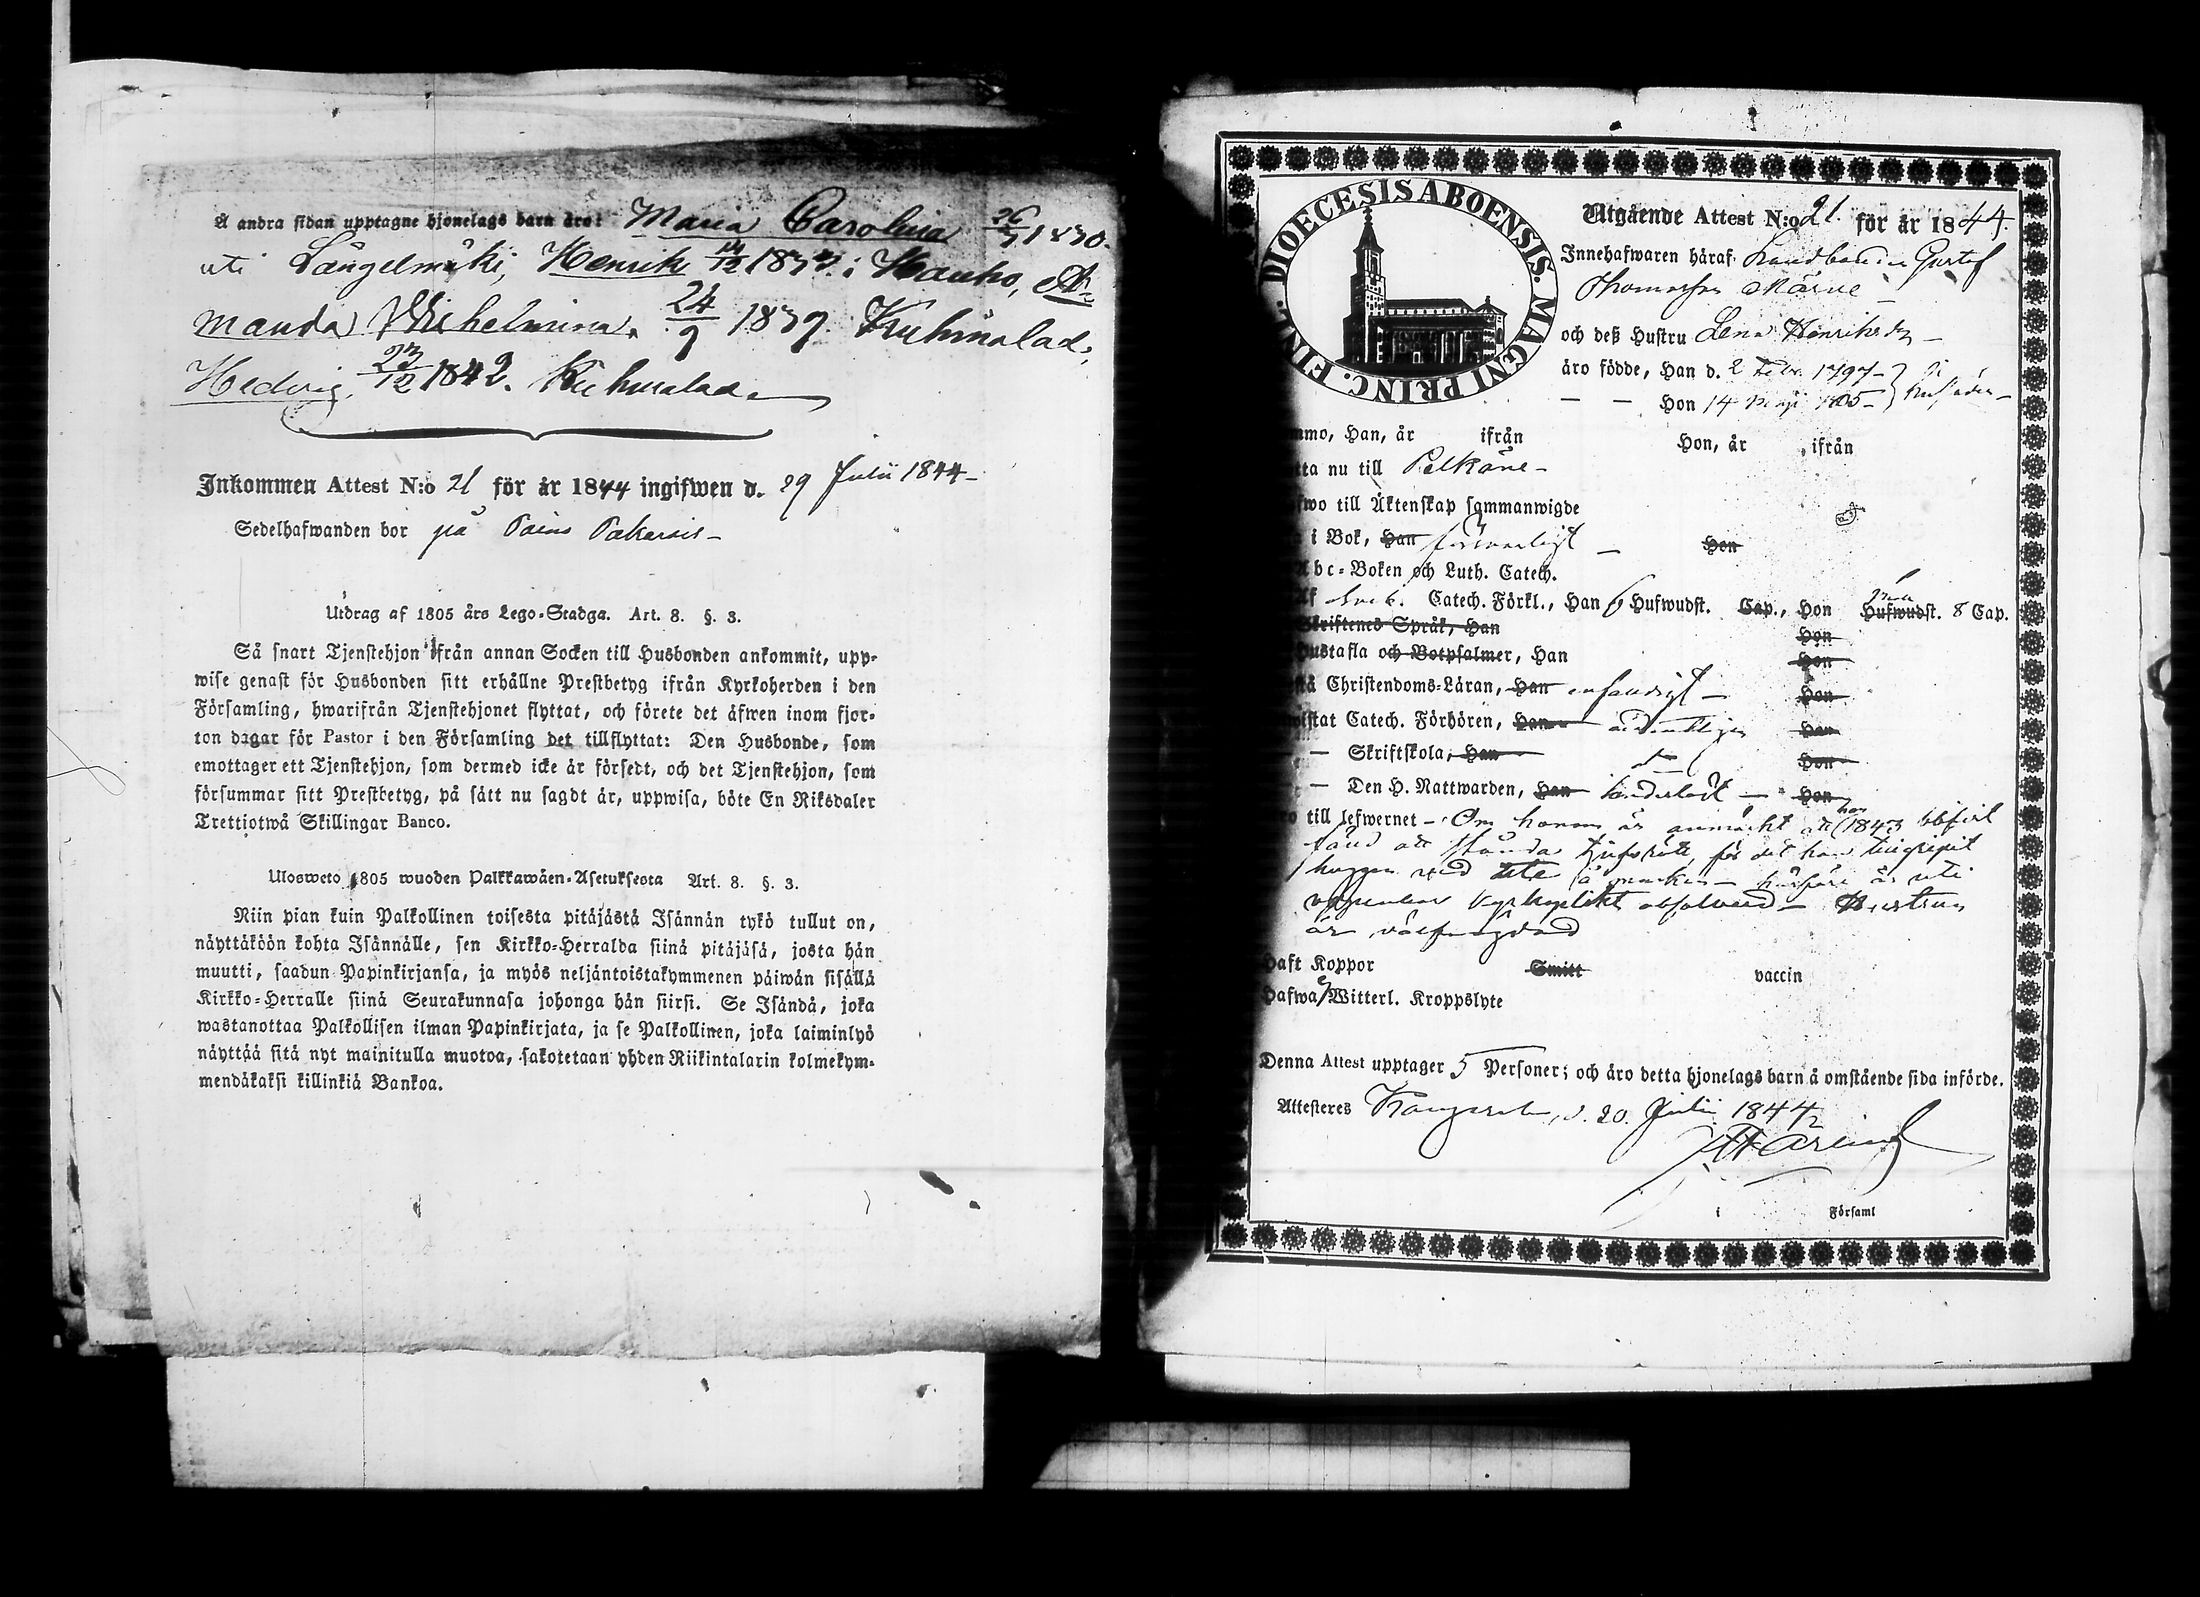 Å andra sidan upptagne hjonelags barn äro: Maria Carolina 1830.
uti Längelmäki, Henrik i Hauho, A=
manda Wilhelmina, 24/9 1839. Kuhmalad.
Hedvig, 1842. Kuhmalad.
Inkommen Attest N:o 21 för år 1844 ingifwen d. 29 Julii 1844
Sedelhafwanden bor på
Utdrag af 1805 års Lego-Stadga. Art. 8. §. 3.
Så snart Tjenstehjon ifrån annan Socken till Husbonden ankommit, upp-
wise genast för Husbonden sitt erhållne Prestbetyg ifrån Kyrkoherden i den
Församling, hwarifrån Tjenstehjonet flyttat, och förete det äfwen inom fjor-
ton dagar för Pastor i den Församling det tillflyttat: Den Husbonde, som
emottager ett Tjenstehjon, som dermed icke är försedt, och det Tjenstehjon, som
försummar sitt Prestbetyg, på sätt nu sagdt är, uppwisa, böte En Riksdaler
Trettiotwå Skillingar Banco.
Ulosweto 1805 wuoden Palkkawäen-Asetuksesta Art. 8. §. 3.
Niin pian kuin Palkollinen toisesta pitäjästä Isännän tykö tullut on,
näyttäköön kohta Isännälle, sen Kirkko-Herralda siinä pitäjäsä, josta hän
muutti, saadun Papinkirjansa, ja myös neljäntoistakymmenen päiwän sisällä
Kirkko-Herralle siinä Seurakunnasa johonga hän siirsi. Se Isändä, joka
wastanottaa Palkollisen ilman Papinkirjata, ja se Palkollinen, joka laiminlyö
näyttää sitä nyt mainitulla muotoa, sakotetaan yhden Riikintalarin kolmekym-
mendäkaksi killinkiä Bankoa.
DIOECESIS ABOENSIS. MAGNI PRINC. FINL.
Utgående Attest N:o 21. för år 1844.
Innehafwaren häraf Landbonden Gustaf
Thomasson
och deß Hustru Lena Henriksdr
äro födde, Han d. 2 Febr. 1797
— — Hon 14 Maji 1805
mmo, Han, år ifrån Hon, år ifrån
tta nu till Pelkäne
fwo till Äktenskap sammanwigde
i Bok, Han försvarligt Hon
Abc-Boken och Luth. Catech.
Af Sveb. Catech. Förkl., Han 6 Hufwudst. Cap., Hon Hufwudst. 8 Cap.
Skriftenes Språk, Han Hon
Hustafla och Botpsalmer, Han Hon
stå Christendoms-Läran, Han enfaldigt Hon
wistat Catech. Förhören, Han ordentligen Hon
— Skriftskola, Han Hon
— Den H. Nattwarden, Han Hon
ro till lefwernet — Om honom är anmärkt att han 1843 blifvit
är välfrägdad
Haft Koppor Smitt vaccin
Hafwa Witterl. Kroppslyte
Denna Attest upptager 5 Personer; och äro detta hjonelags barn å omstående sida införde.
Attesteres d. 20. Julii 1844
i Församl